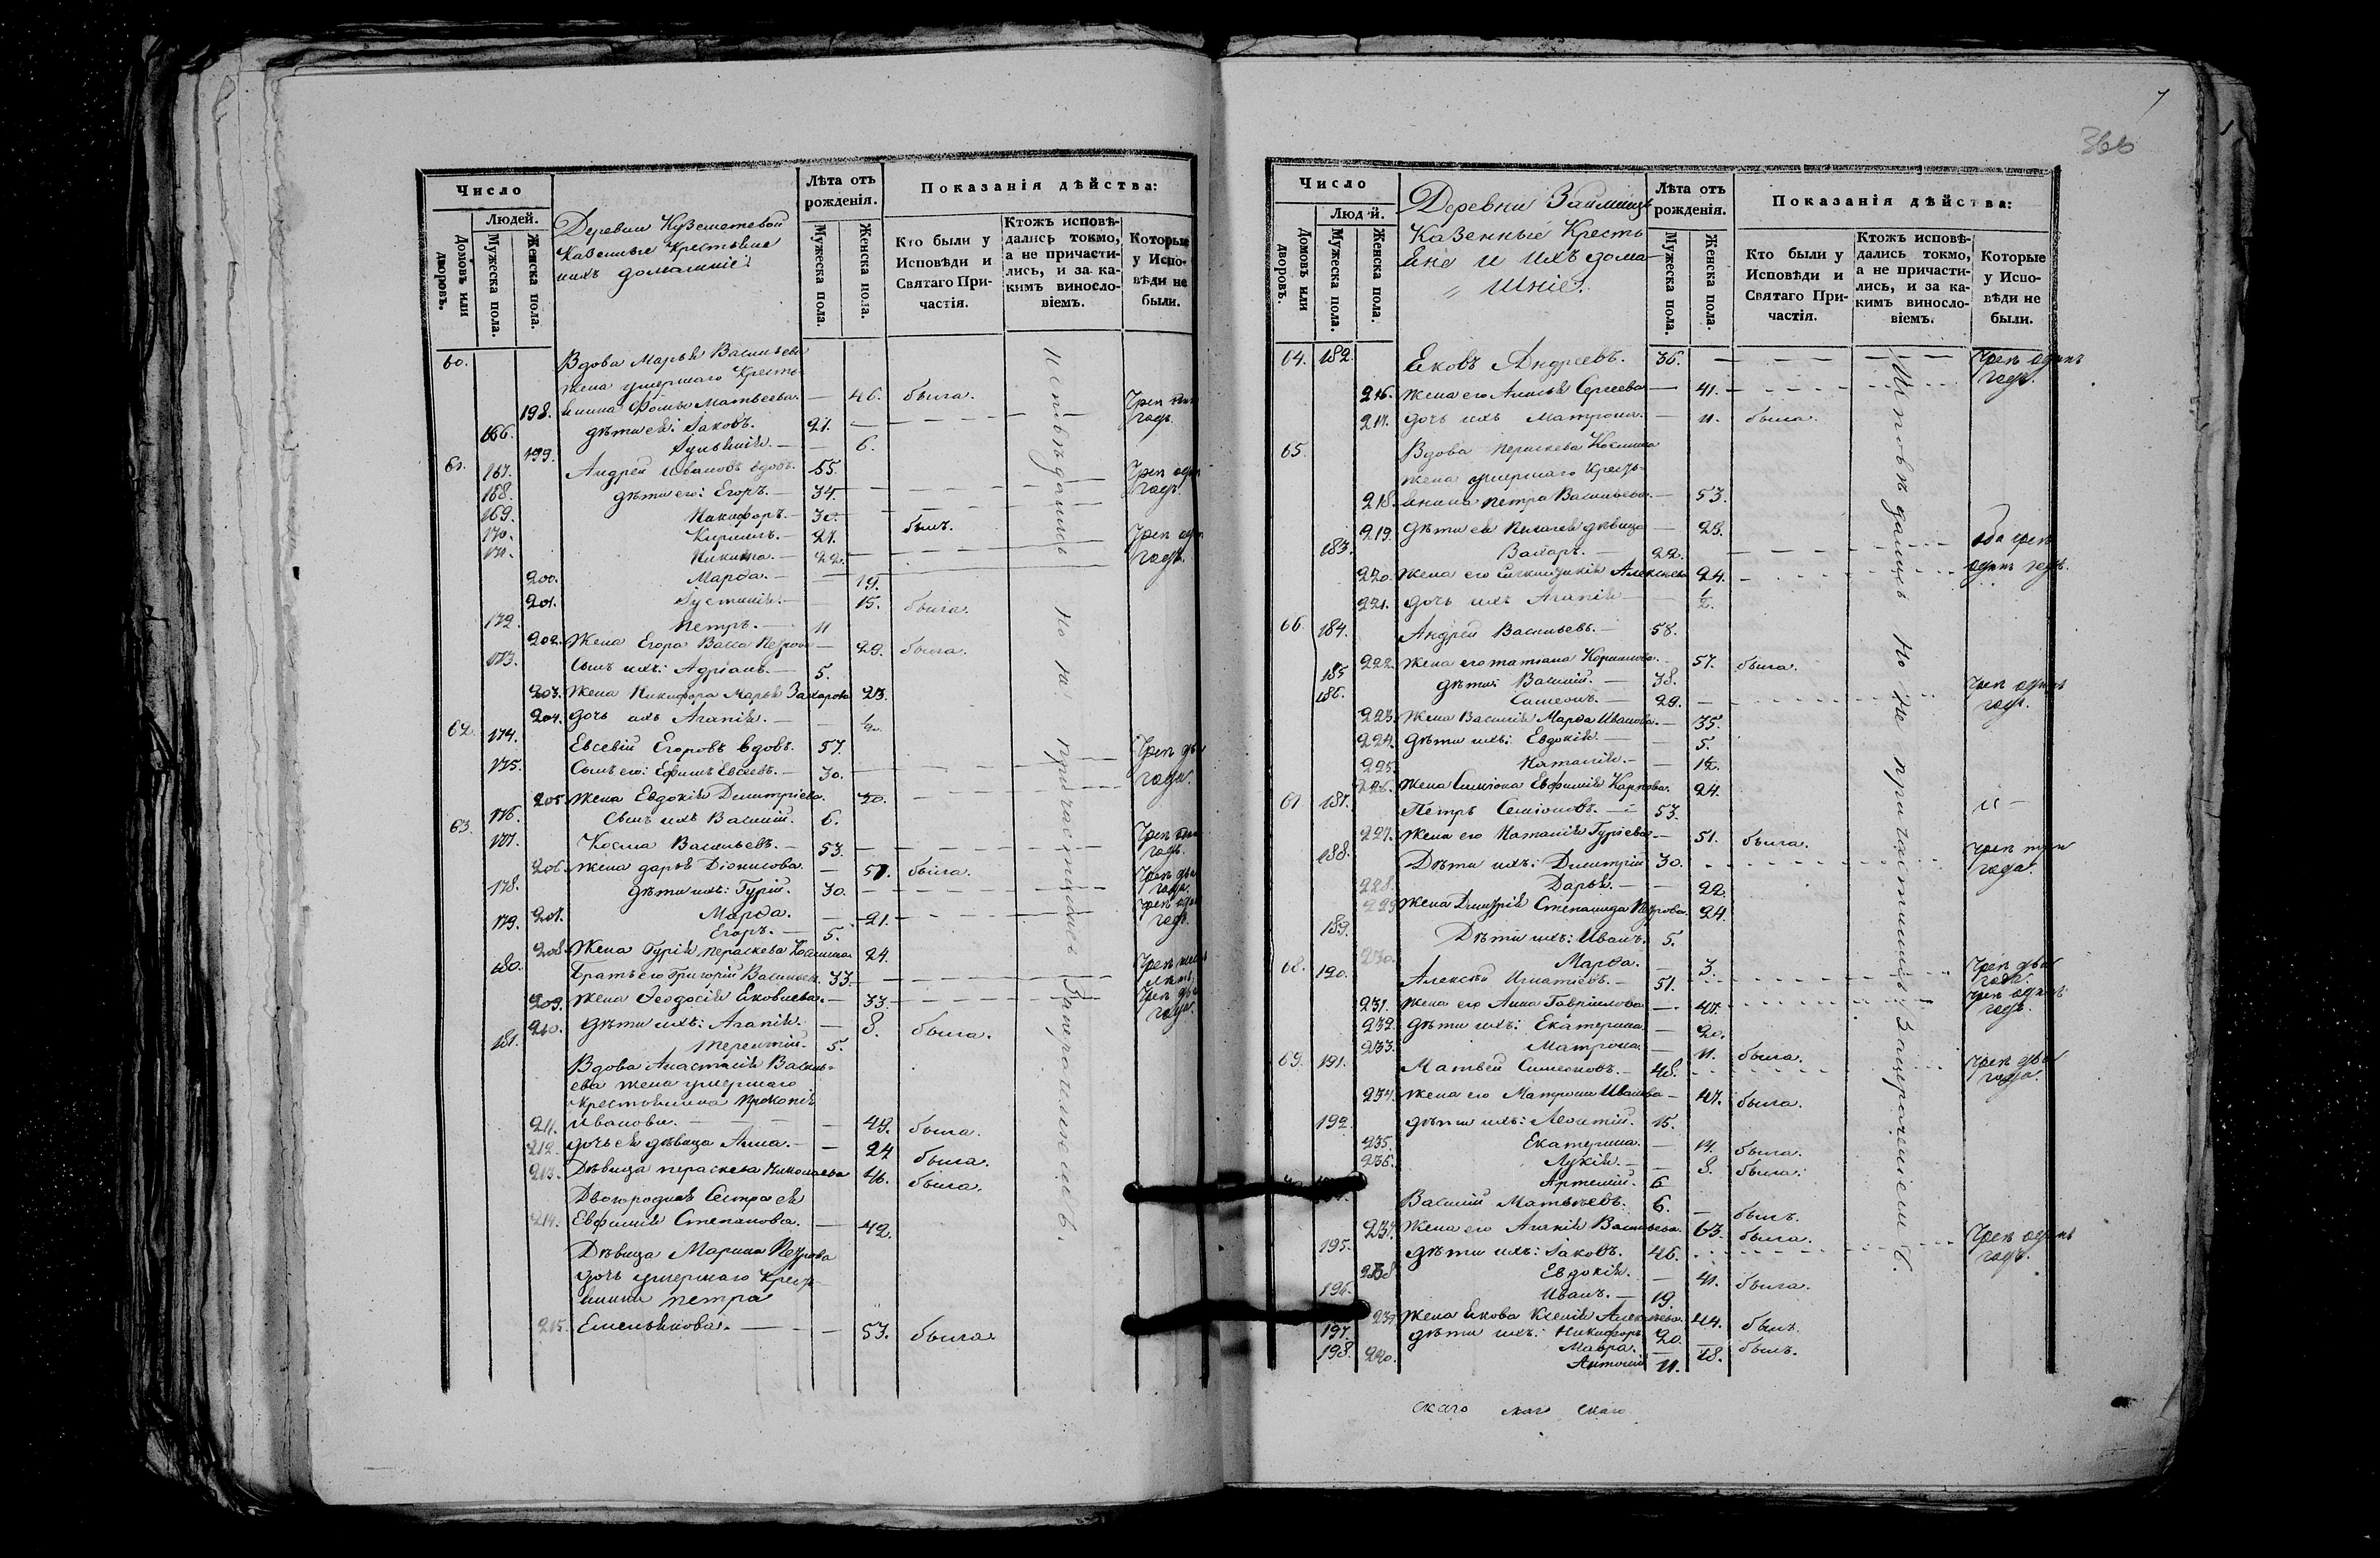 Число
Людей.
Домовъ или дворовъ.
Мужеска пола.
Женска пола.
Деревни
Казенные Крестьяне
ихъ домашніе:
Лѣта отъ рожденія.
Мужеска пола.
Женска пола.
Показанія дѣйства:
Кто были у Исповѣди и Святаго Причастія.
Ктожъ исповѣдались токмо, а не причастились, и за какимъ винословіемъ.
Которые у Исповѣди не были.
60. Вдова Марья Васильева
жена умершаго Кресть-
198. янина Фомы Матвѣева. — 46. была.
166. дѣти ея: Іаковъ. 21. — Чрез
годъ.
199. Іуліанія. — 6.
61. 167. Андрей Ивановъ вдовъ. 55. Чрез один
168. дѣти его: Егоръ. — 34. годъ.
169. Никифоръ. — 30.
170. Кириллъ. — 21. былъ. Чрез один
171. Никита. — 22. годъ.
200. Марѳа. — 19.
201. Іустинія. — 15. была.
172. Петръ. — 11
202. Жена Егора Васса Петрова — 29. была.
173. Сынъ ихъ: Адріанъ. — 5.
203. Жена Никифора Марья Захарова 23.
204. дочь ихъ Агапія. — ½.
62. 174. Евсевій Егоровъ вдовъ. 57. Чрез два
175. Сынъ его: Ефимъ Евсеевъ. — 30. года.
205. Жена Евдокія Димитріева. 30.
176. Сынъ ихъ Василій. 6.
63. 177. Косма Васильевъ. — 53. Чрез один
годъ.
206. жена Дарья Діонисова. — 51. была. Чрез два
178. дѣти ихъ: Гурій. 30. года.
207. Марѳа. — 21. Чрез один
179. Егоръ. — 5. годъ.
208. Жена Гурія Параскева Косьмина 24.
180. Братъ его Григорій Васильевъ. 33. Чрез
209. Жена Ѳеодосія Яковлева. — 33. Чрез два
210. дѣти ихъ: Агапія. — 8. была. года.
181. Терентій. 5.
Вдова Анастасія Василь-
ева жена умершаго
крестьянина Прокопія
211. Иванова. — 49. была.
212. дочь ея дѣвица Анна. — 24 была.
213. Дѣвица Параскева Николаева 46. была.
Двоюродная Сестра ея
214. Евфимія Степанова. — 42.
Дѣвица Марина Петрова
дочь умершаго Кресть-
янина Петра
215. Емельянова. — 53. была.
Исповѣдались но не причастились за
366
Число
Людей.
Домовъ или дворовъ.
Мужеска пола.
Женска пола.
Деревни Займищъ
Казенные Кресть
яне и ихъ дома
шніе.
Лѣта отъ рожденія.
Мужеска пола.
Женска пола.
Показанія дѣйства:
Кто были у Исповѣди и Святаго Причастія.
Ктожъ исповѣдались токмо, а не причастились, и за какимъ винословіемъ.
Которые у Исповѣди не были.
64. 182. Яковъ Андреевъ. 36. — Чрез одинъ
216. Жена его Сергеева — 41. годъ.
217. дочь ихъ Матрона. — 11. была.
65. Вдова Параскева Космина
жена умершаго Кресть-
218. янина Петра Васильева. — 53.
219. дѣти ея дѣвица — 23. оба чрез
183. Захаръ. — 22. одинъ годъ.
220. Жена его Алексѣева 24.
221. дочь ихъ Агапія — ½.
66. 184. Андрей Васильевъ. — 58.
222. Жена его Татіана Корнилова. — 57. была.
185 дѣти: Василій. — 38. Чрез одинъ
186. Симеонъ. — 29. годъ.
223. Жена Василія Марѳа Иванова. — 35.
224. дѣти ихъ: Евдокія. — 5.
225. Наталія. — 1½.
226. Жена Симеона Евфимія Карпова. 24.
67 187. Петръ Семіоновъ. — 53.
227. Жена его Наталія Гурьева. — 51. была. Чрез три
188. Дѣти ихъ: Димитрій 30. года.
228. Дарья. — 22.
229 Жена Дмитрія Степанида Петрова. 24.
189. Дѣти ихъ: Иванъ. 5.
230. Марѳа. — 3.
68. 190. Алексѣй Игнатьевъ. — 51. Чрез два
года.
231. Жена его Анна Гавріилова — 47. Чрез одинъ
232. дѣти ихъ: Екатерина. — 20. годъ.
233. Матрона. — 11. была.
69. 191. Матвей Симеоновъ. — 48. Чрез два
года.
234. Жена его Матрона Иванова — 47. была.
192. дѣти ихъ: Леонтій. 15.
235. Екатерина. — 14. была.
236. Лукія. — 8. была.
Артемій. 6
Василій Матвѣевъ. 6. — былъ.
237. Жена его Агапія Васильева. 63. была.
195. дѣти ихъ: Іаковъ. 46. Чрез одинъ
238 Евдокія. — 41. была. годъ.
196. Иванъ. — 19.
239 Жена Якова Ксенія Алексѣева. 44. былъ.
197. дѣти ихъ: Никифоръ 20. былъ.
240. Мавра. — 18.
198. Антоній 11.
Исповѣдались но не причастились за
скаго скаго скаго